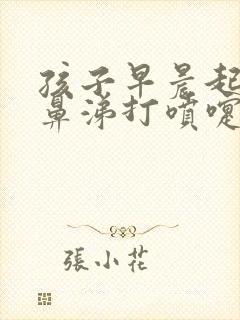 孩子早晨起
鼻涕打噴嚏
張小花